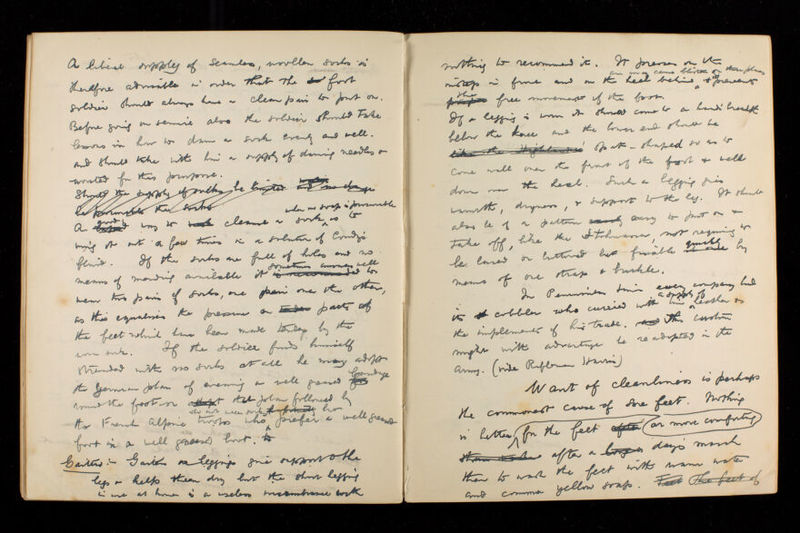 A liberal supply of seamless, woollen socks is
therefore advisable in order that the foot
soldier should always have a clean pair to put on.
Before going on service also the soldier should take
lessons in how to darn a sock evenly and well.
and should take with him a supply of darning needles &
worsted for this purpose.
Should the supply of socks be limited
be permeable the socks
A good way to cleanse a sock, when no soap is procurable is to
wring it out a few times in a solution of Condy's
fluid. If the socks are full of holes and no
means of mending available it sometimes answers well to
wear two pairs of socks, one pair over the other,
as this equalises the pressure on parts of
the feet which have been made tender by the
worn sock. If the soldier finds himself
stranded with no socks at all he may adopt
the German plan of wearing a well greased bandage
around the foot or the plan followed by
the French Alpine troops who prefer a well greased
foot in a well greased boot.
Gaiters:- Gaiters or leggings give support to the
legs & helps keep them dry but the short legging
in use at home is a useless encumbrance with
nothing to recommend it. It presses on the
instep in front and on the heel behind, & may cause blister on these places & prevents
the free movement of the foot.
If a legging is worn it should come to a hand's breadth
below the knee and the lower end should be
like the Highlanders spat-shaped so as to
come well over the front of the foot & well
down over the heel. Such a legging gives
warmth, dryness, & support to the leg. It should
also be of a pattern easy to put on &
take off, like the Stohwasser, not requiring to
be laced or buttered but fixable quickly by
means of one strap & buckle.
In Peninsular times every company had
its cobbler who carried with him a supply of leather &
the implements of his trade. This custom
might with advantage be readopted in the
army. (vide Rifleman Harris)
Want of cleanliness is perhaps
the commonest cause of sore feet. Nothing
is better for the feet or more comforting
after a days march
than to wash the feet with warm water
and common yellow soap. The feet of